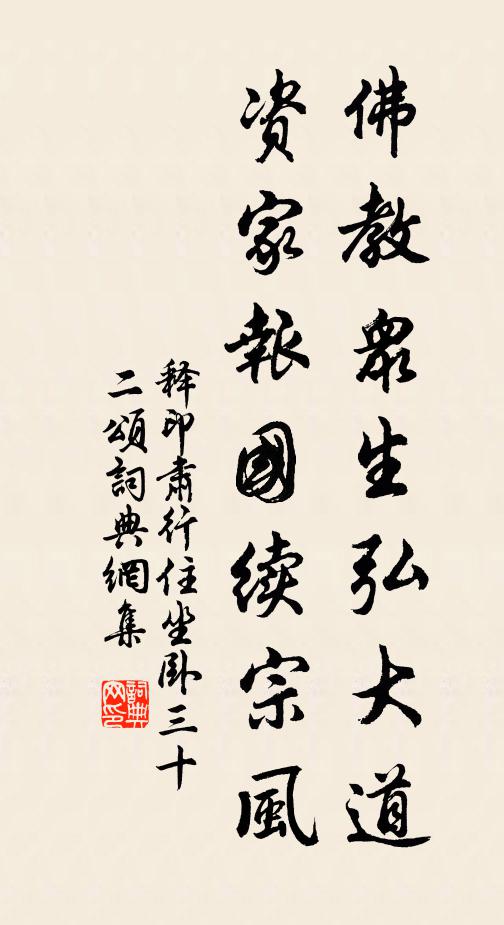 佛教眾生弘大道
资家報國续宗風
释印肃行住坐卧三十
二頌詞典網集
詞典
网印